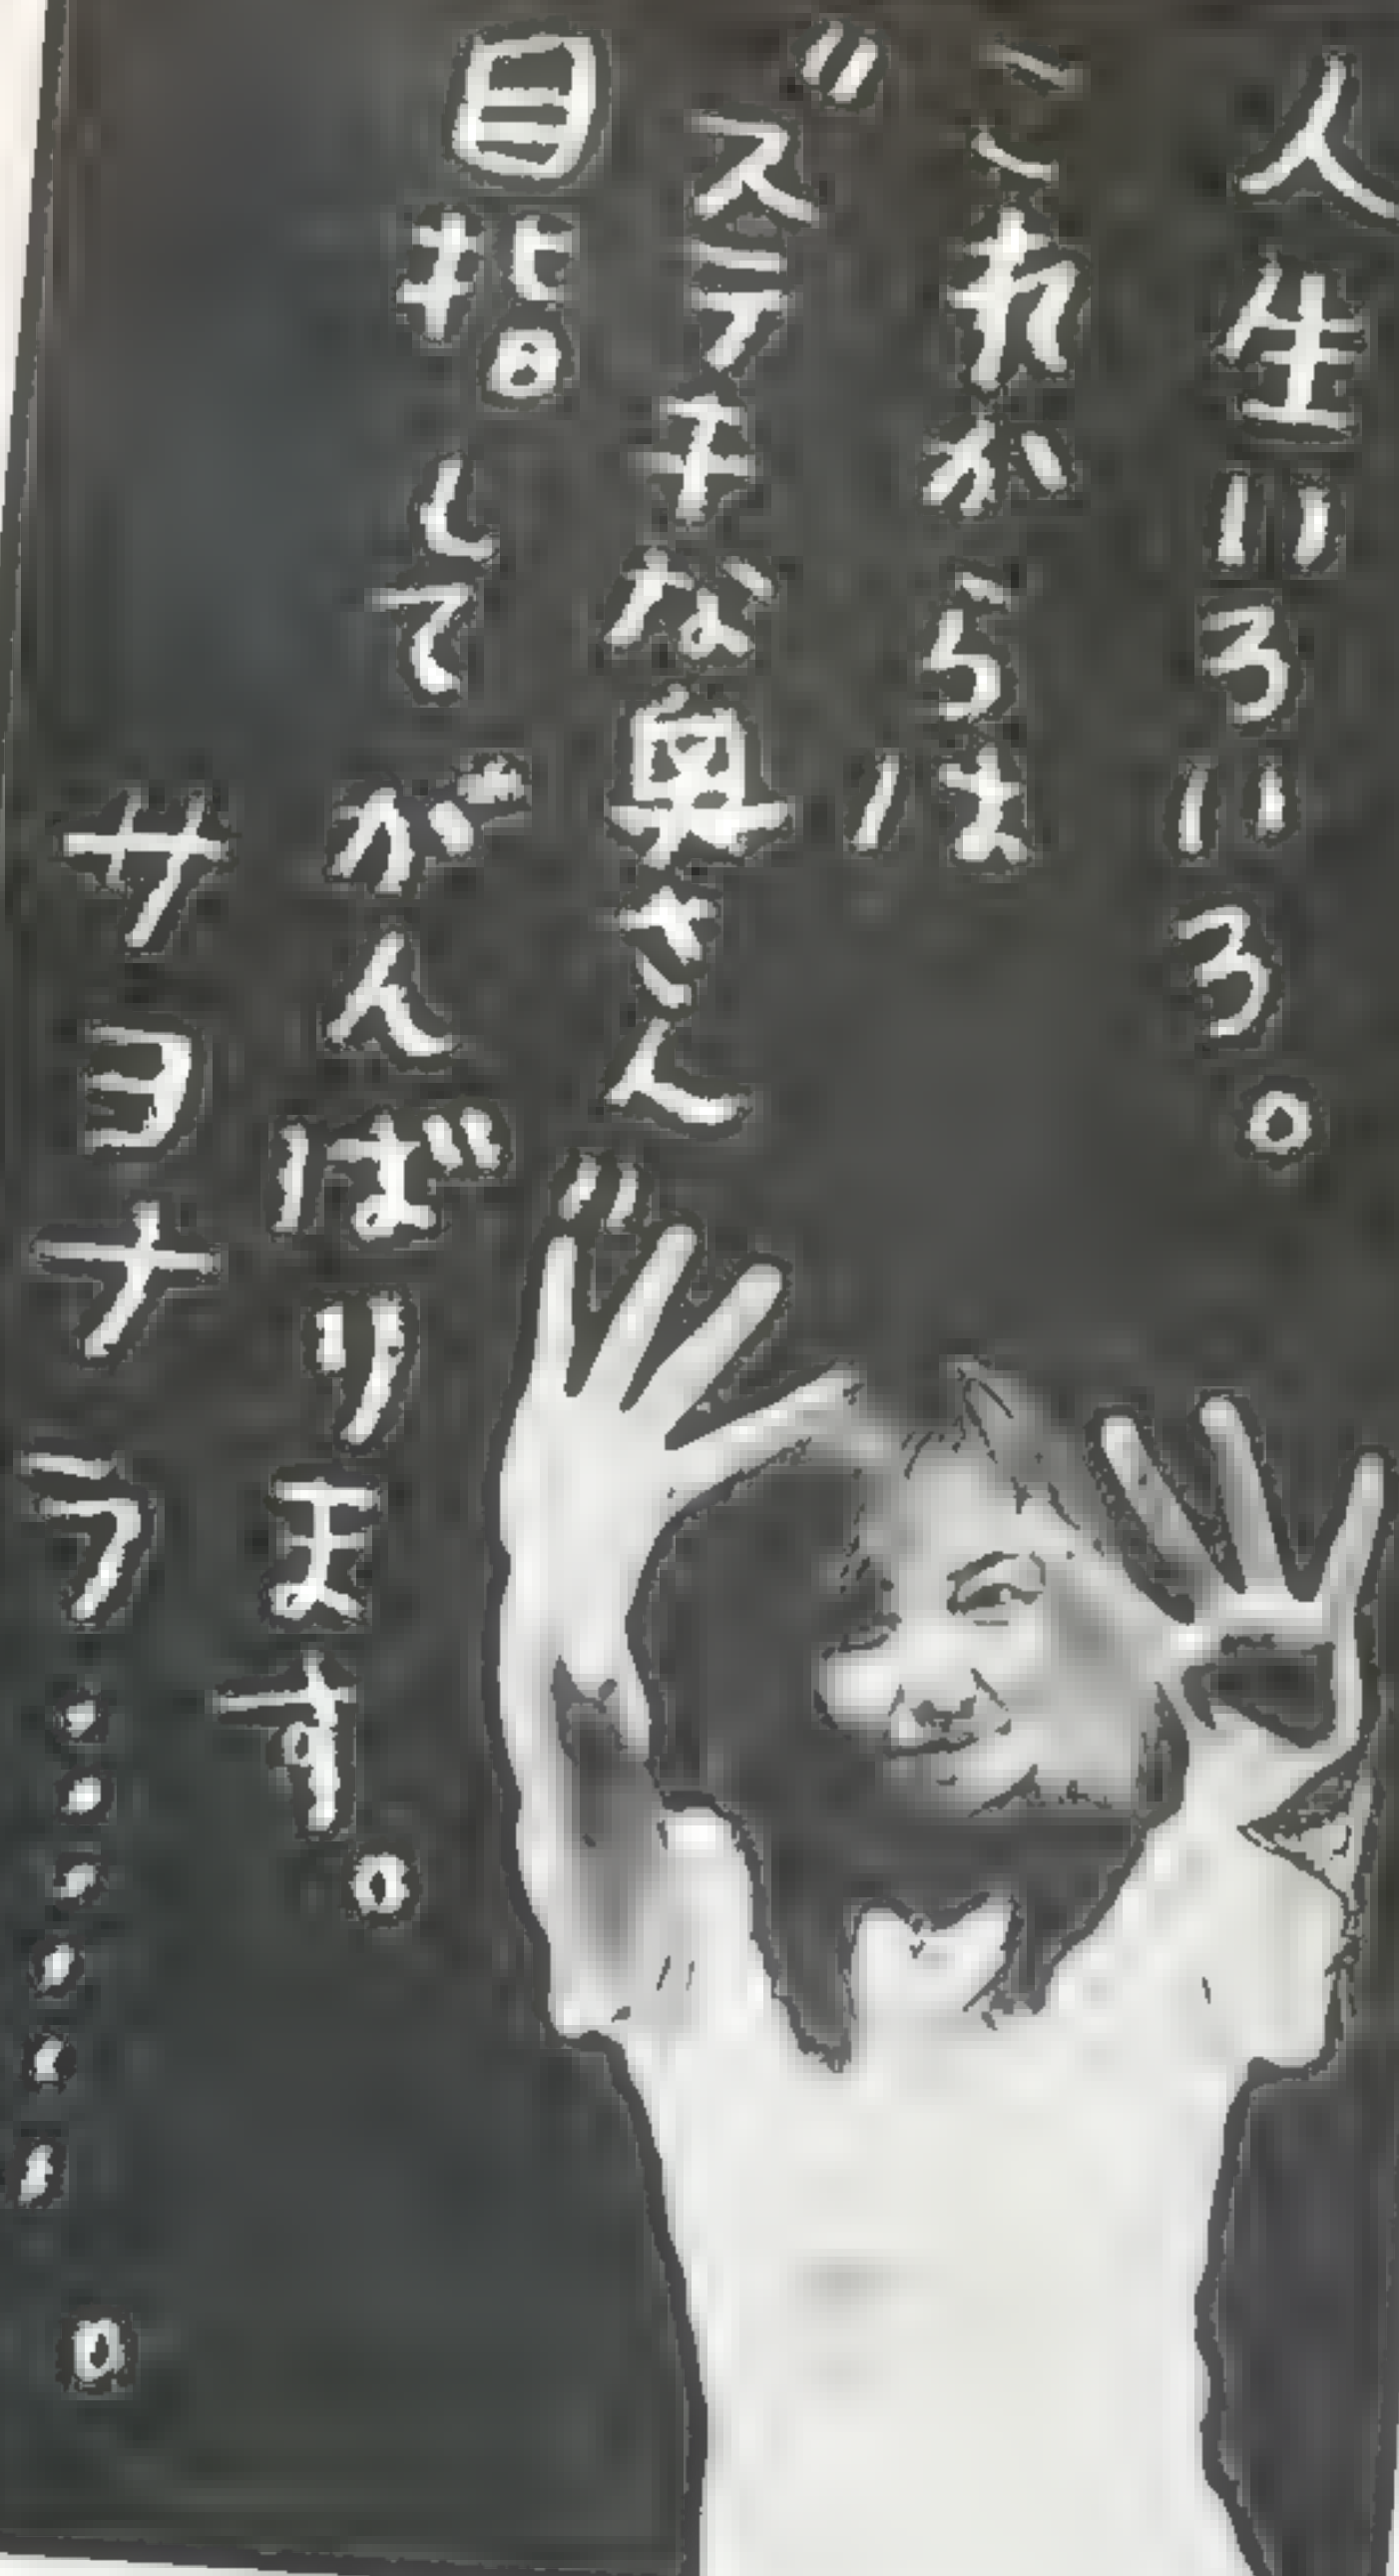 人生いろいろ。
これからは
〃ステキな奥さん〃
目指して
がんばります。
サヨナラ・・・・・・。